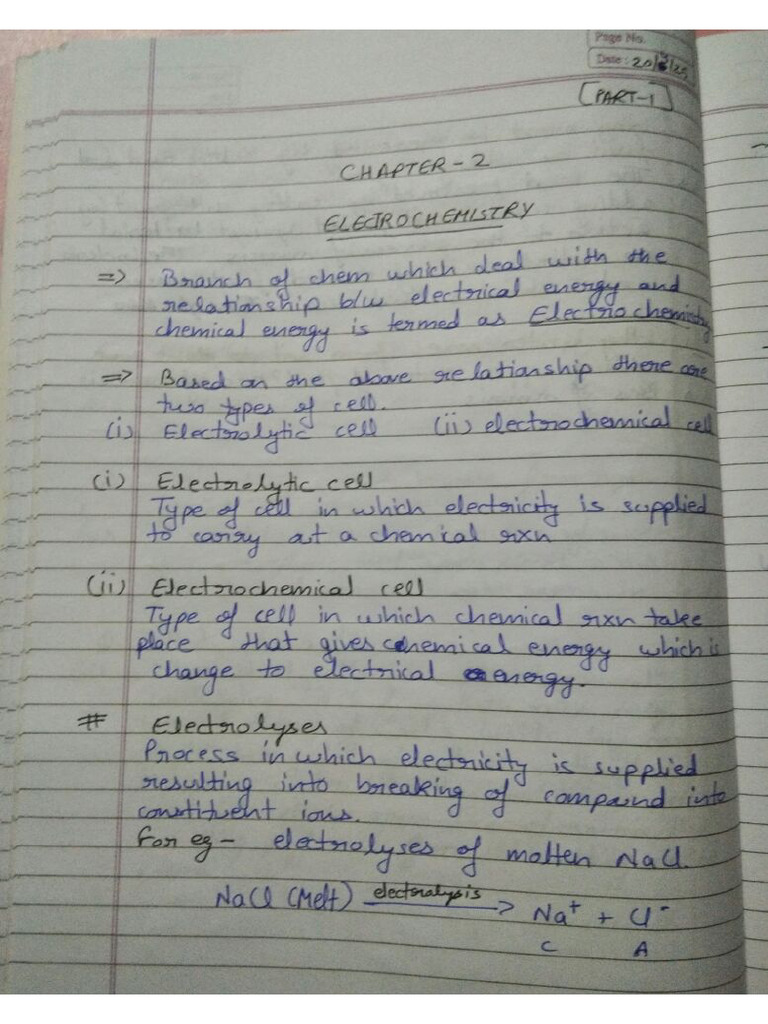 Page No.
Date: 20/ /25
[PART-1]
CHAPTER-2
ELECTROCHEMISTRY
=> Branch of chem which deal with the
relationship b/w electrical energy and
chemical energy is termed as Electrochemistry
=> Based on the above relationship there are
two types of cell.
(i) Electrolytic cell (ii) electrochemical cell
(i) Electrolytic cell
Type of cell in which electricity is supplied
to carry at a chemical rxn
(ii) Electrochemical cell
Type of cell in which chemical rxn take
place that gives chemical energy which is
change to electrical energy.
# Electrolyses
Process in which electricity is supplied
resulting into breaking of compound into
constituent ions.
For eg - electrolyses of molten NaCl.
NaCl (Melt) electrolysis → Na⁺ + Cl⁻
C A